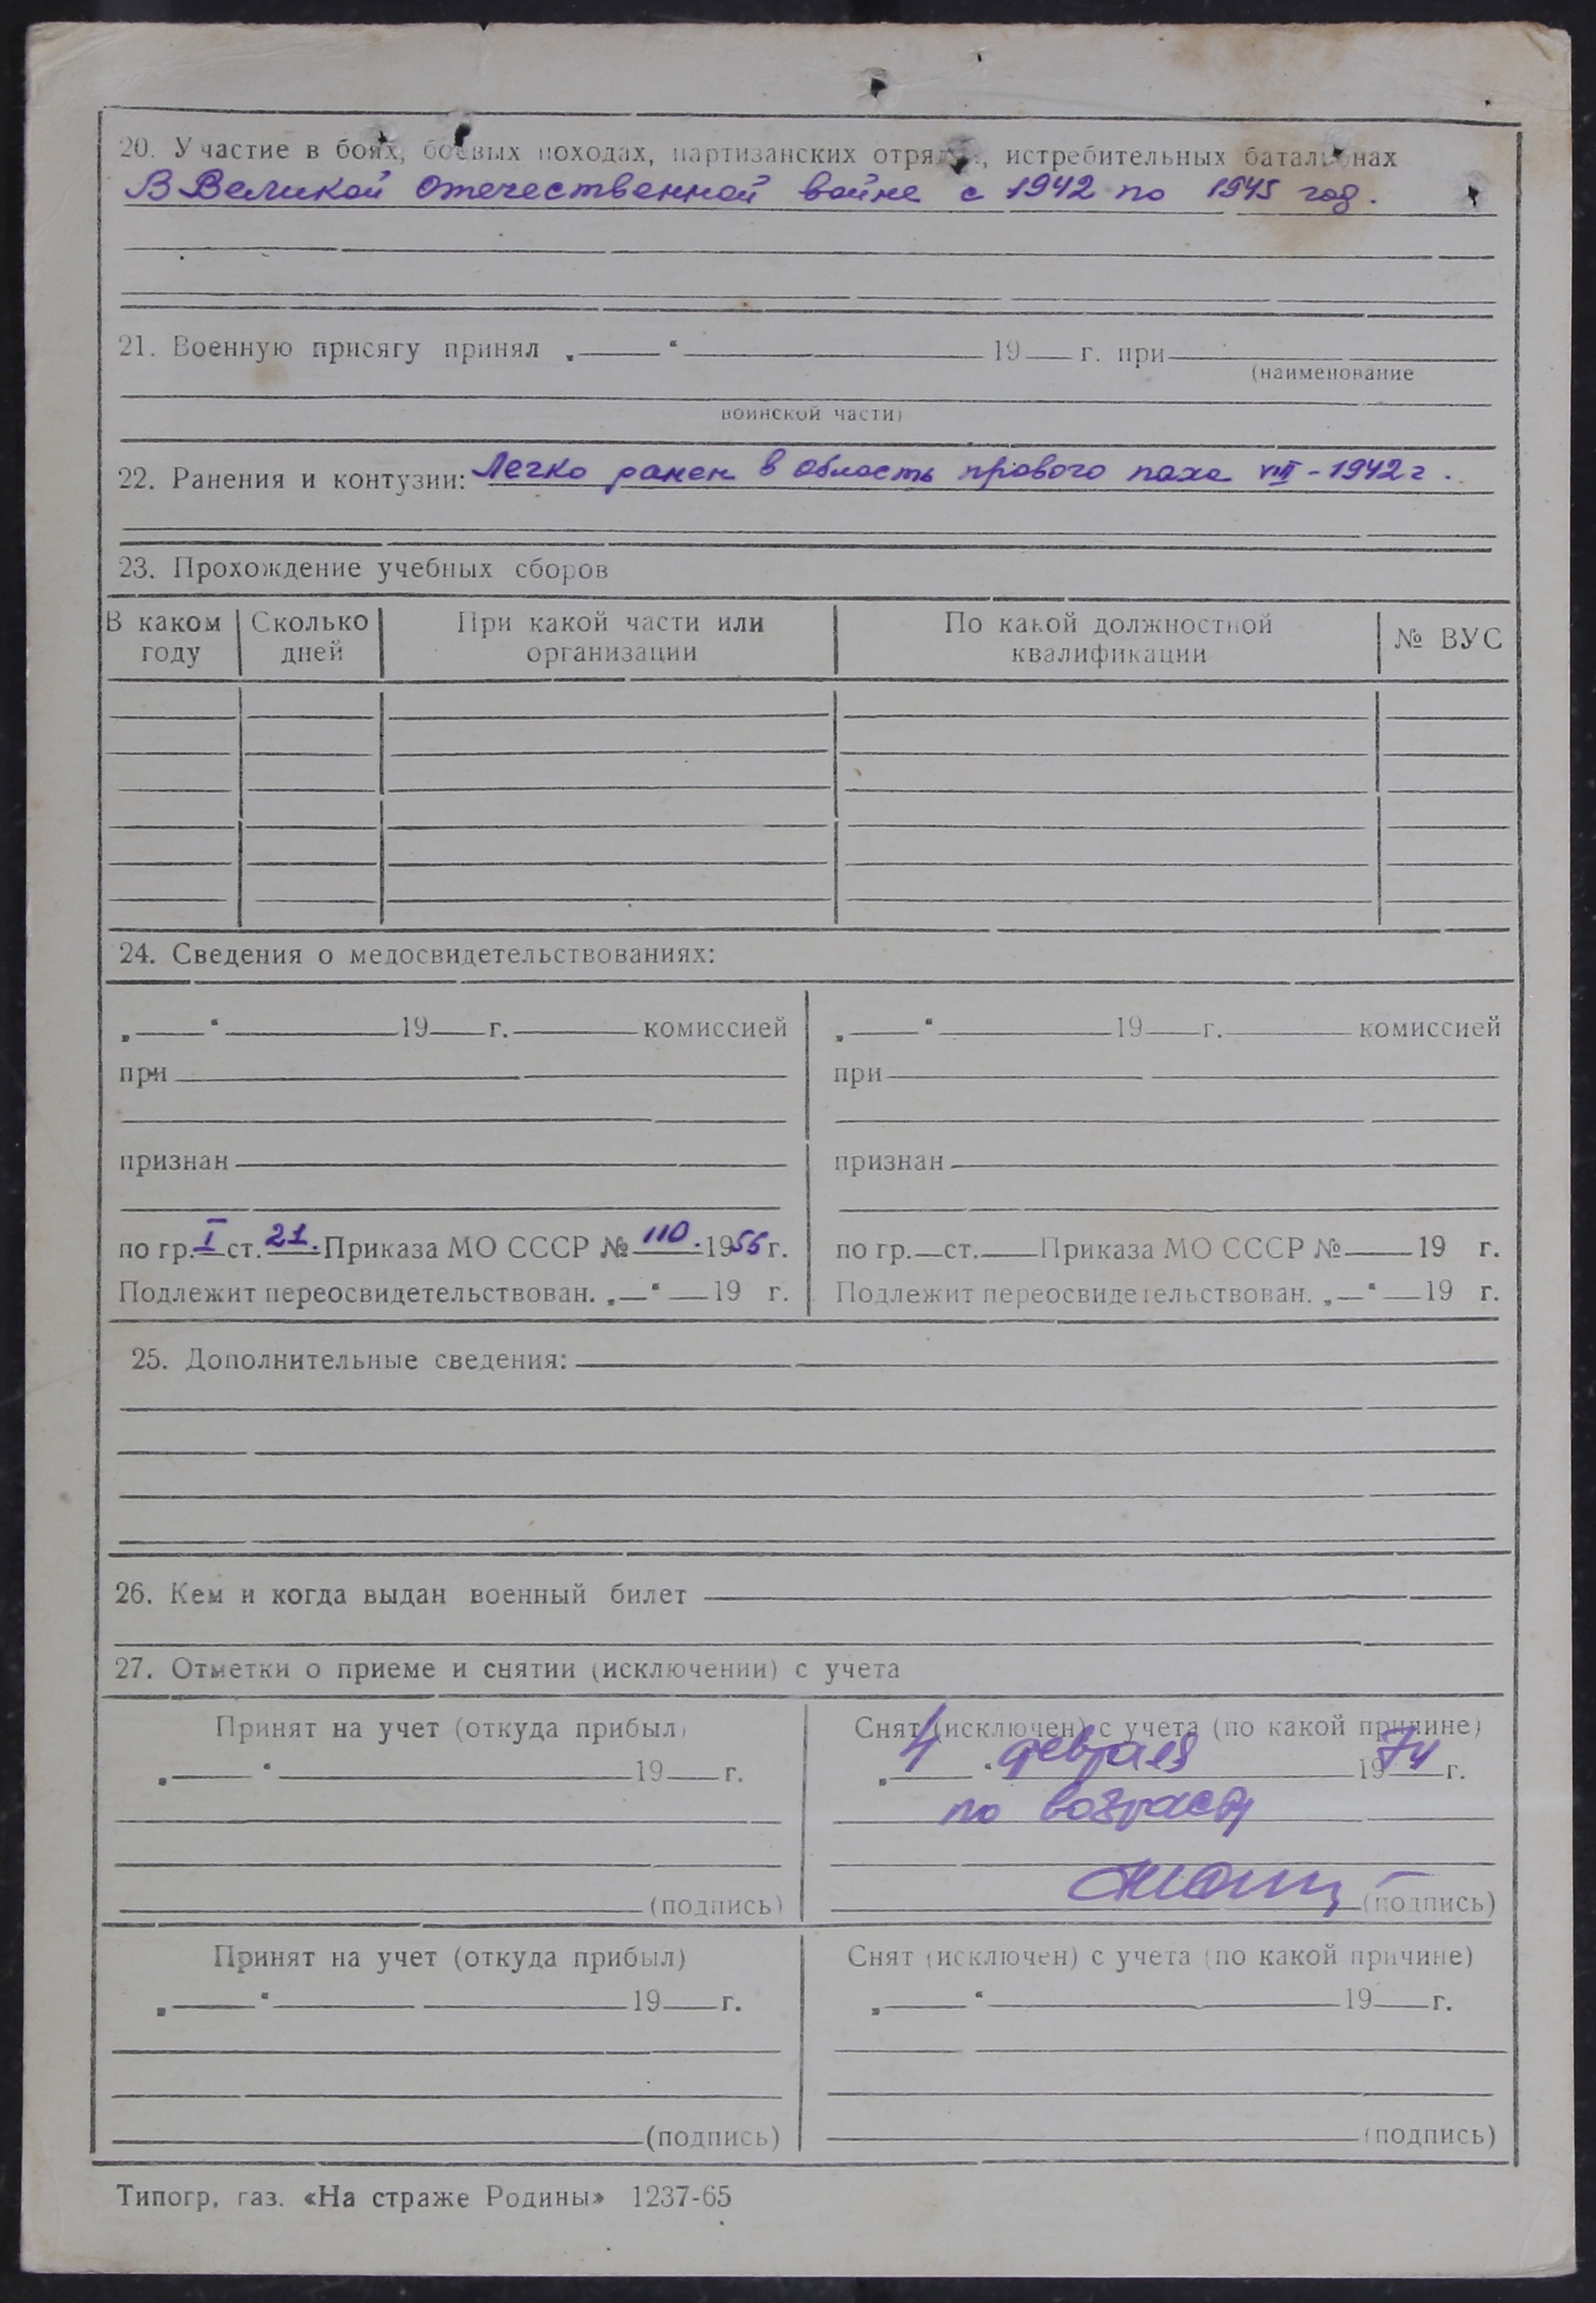 20. Участие в боях, боевых походах, партизанских отрядах, истребительных батальонах
В Великой Отечественной войне с 1942 по 1945 год.
21. Военную присягу принял „ “ 19 г. при
(наименование
воинской части)
22. Ранения и контузии: Легко ранен в область правого паха VIII - 1942 г.
23. Прохождение учебных сборов
В каком году Сколько дней При какой части или организации По какой должностной квалификации № ВУС
24. Сведения о медосвидетельствованиях:
„ “ 19 г. комиссией „ “ 19 г. комиссией
при при
признан признан
по гр. I ст. 21. Приказа МО СССР № 110. 1956 г. по гр. ст. Приказа МО СССР № 19 г.
Подлежит переосвидетельствован. „ “ 19 г. Подлежит переосвидетельствован. „ “ 19 г.
25. Дополнительные сведения:
26. Кем и когда выдан военный билет
27. Отметки о приеме и снятии (исключении) с учета
Принят на учет (откуда прибыл) Снят (исключен) с учета (по какой причине)
„ “ 19 г. „ 4 “ февраля 1974 г.
по возрасту
(подпись) (подпись)
Принят на учет (откуда прибыл) Снят (исключен) с учета (по какой причине)
„ “ 19 г. „ “ 19 г.
(подпись) (подпись)
Типогр. газ. «На страже Родины» 1237-65